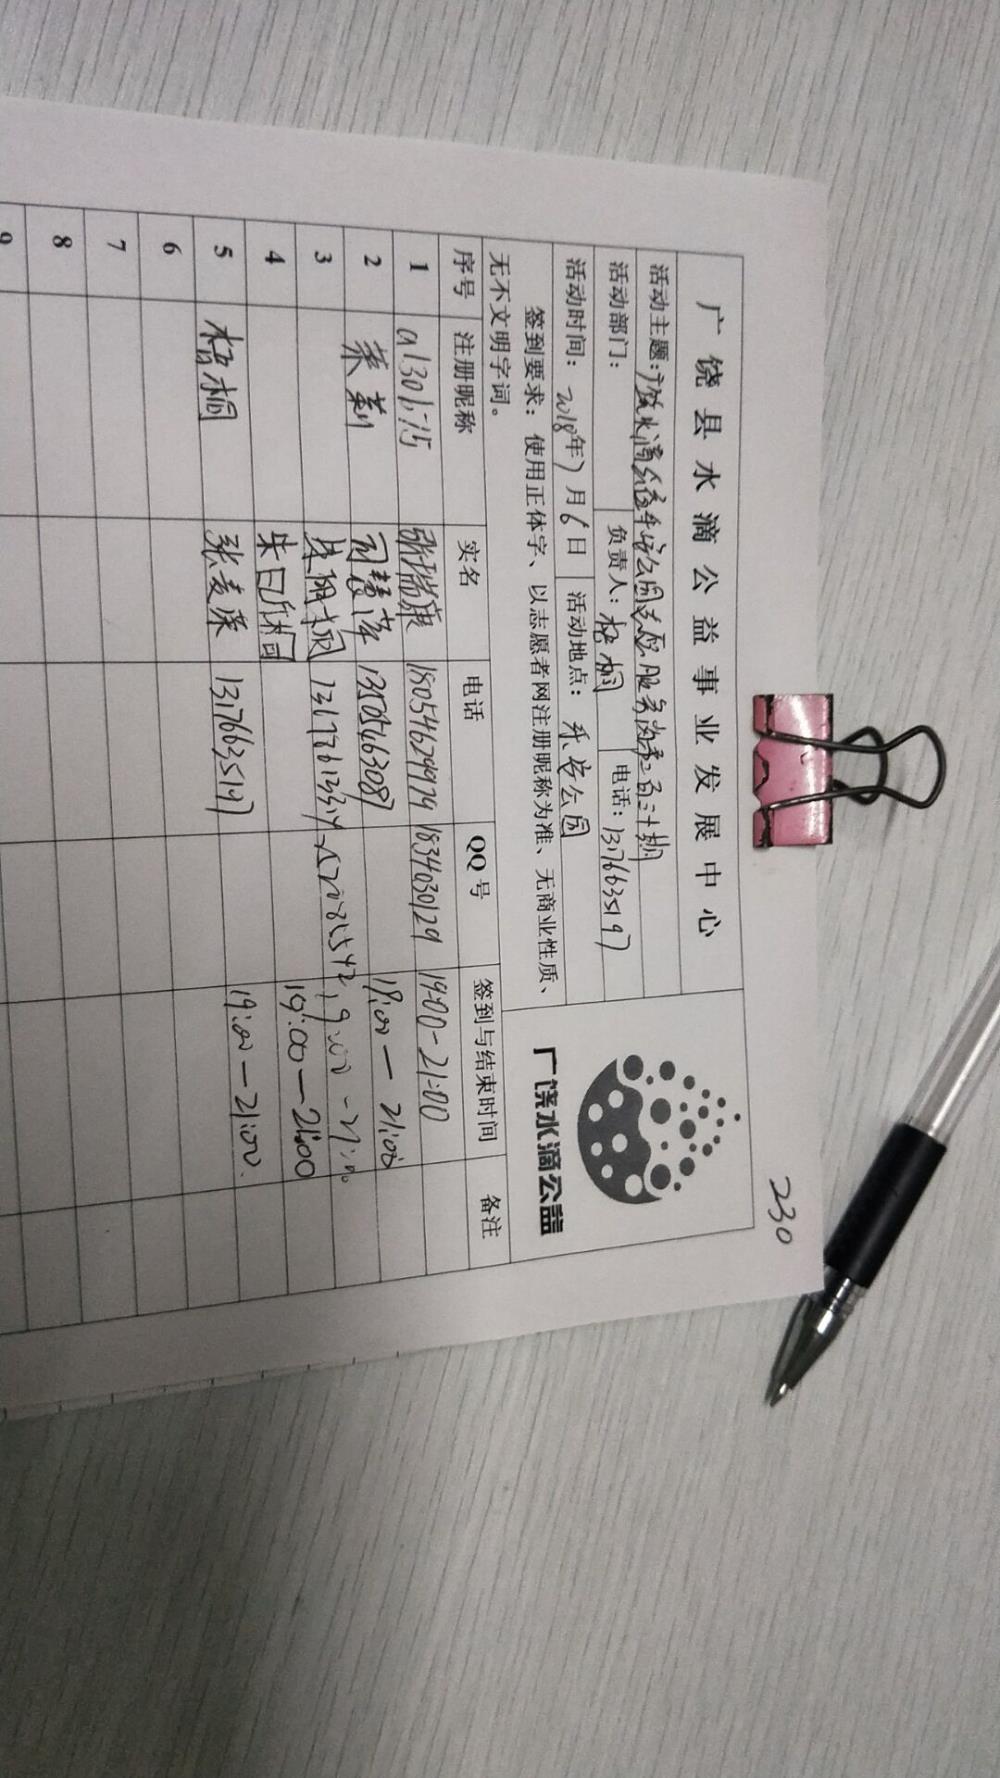 230
广饶县水滴公益事业发展中心
活动主题:广饶水滴公益乐安公园志愿服务 二百三十期
活动部门: 负责人:梧桐 电话:13176635197
活动时间:2018年7月6日 活动地点:乐安公园
签到要求:使用正体字、以志愿者网注册昵称为准、无商业性质、
无不文明字词。
广饶水滴公益
序号 注册昵称 实名 电话 QQ号 签到与结束时间 备注
1 a1301:15 张瑞康 18054629979 1834030129 19:00-21:00
2 茉莉 司慧萍 13505463087 19:00-21:00
3 19:00-21:00
4 19:00-21:00
5 梧桐 张麦荣 13176635197 19:00-21:00.
6
7
8
9